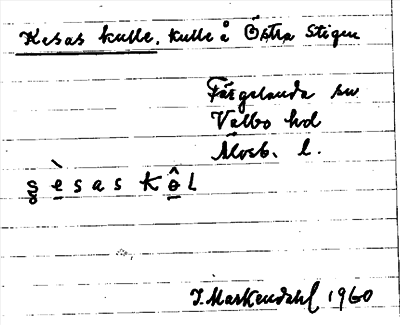 Kesas kulle. kulle å Östra Stigen
Färgelanda sn
Valbo hd
Älvsb. l.
I. Markendahl 1960